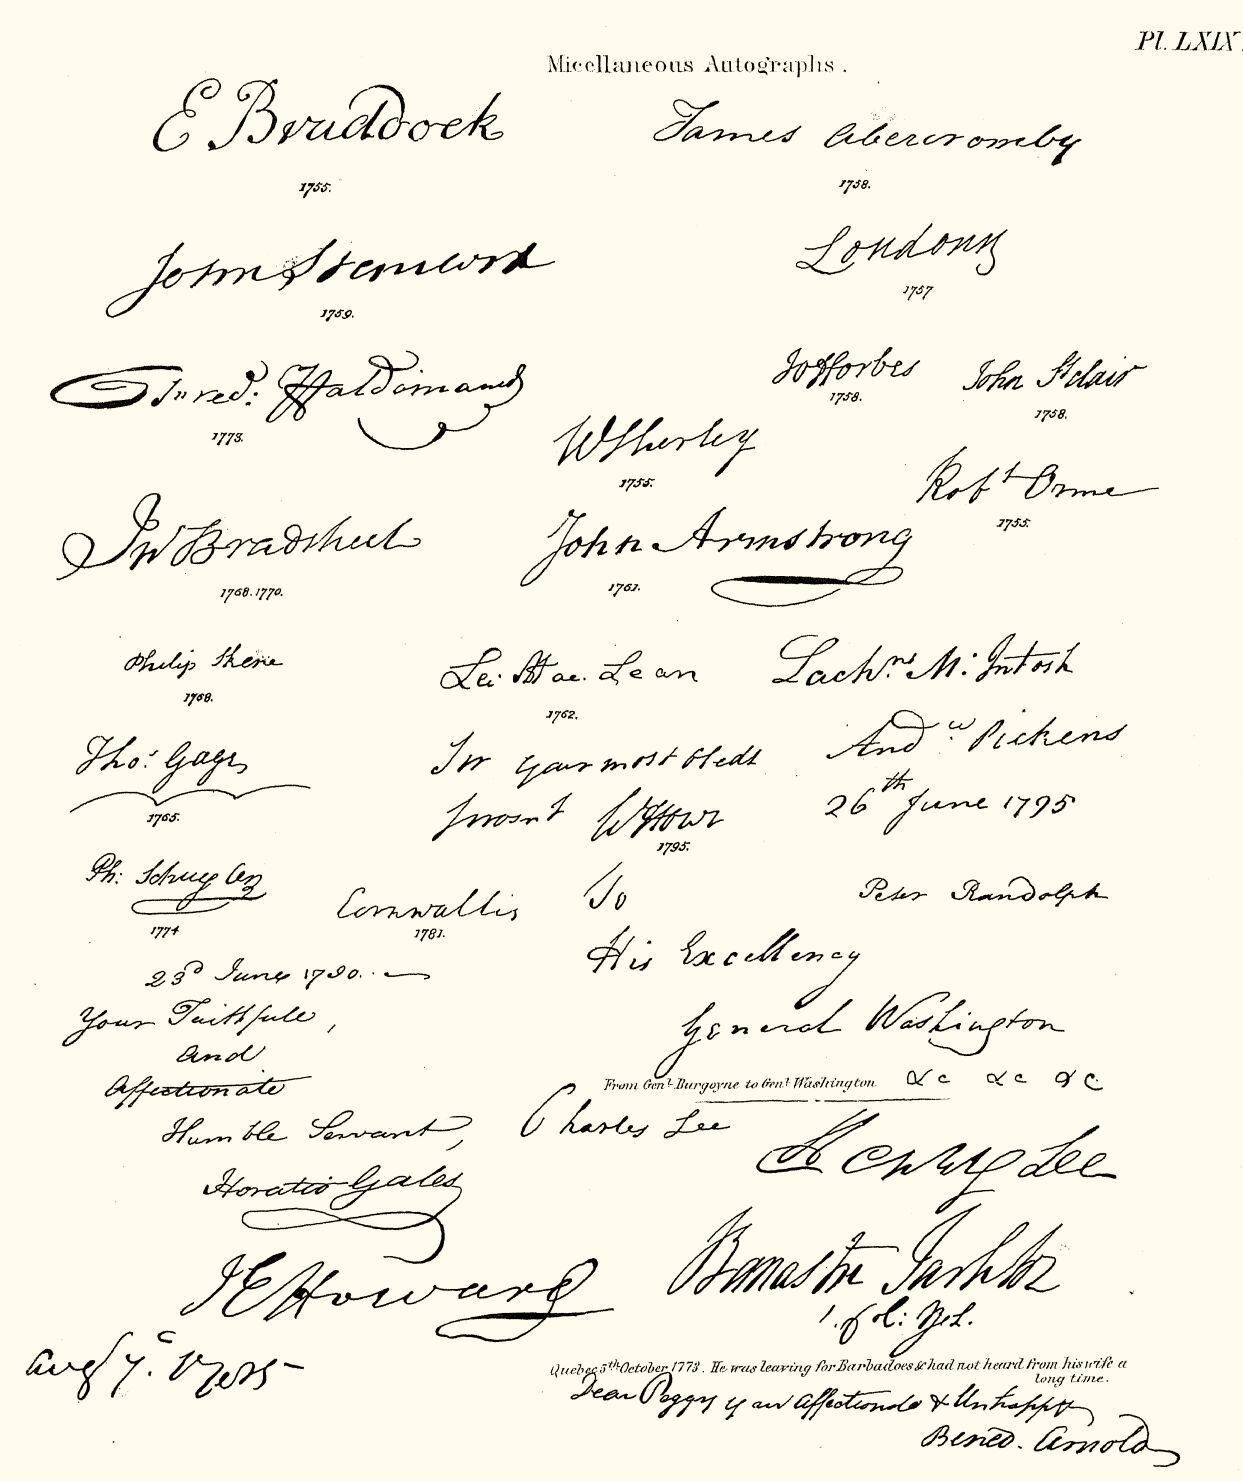 Pl. LXIX.
Micellaneous Autographs.
E Braddock
1755.
James Abercromby
1758.
John Stanwix
1759.
Loudoun
1757
Fred: Haldimand
1773.
Jo Forbes
1758.
John St Clair
1758.
W Shirley
1755.
Robt Orme
1755.
Jno Bradstreet
1768. 1770.
John Armstrong
1761.
Philip Skene
1768.
Mac. Lean
1762.
Lachn. Mc Intosh
Thos. Gage
1765.
your most Obedt
W Howe
1795.
Andw Pickens
26th June 1795
Ph: Schuyler
1774
Cornwallis
1781.
Peter Randolph
To
His Excellency
General Washington
From Genl. Burgoyne to Genl. Washington &c &c &c
23d June 1790.
Your Faithfull,
and
Affectionate
Humble Servant,
Horatio Gates
Charles Lee
Henry Lee
J E Howard
Banastre Tarleton
Quebec 5th October 1773. He was leaving for Barbadoes & had not heard from his wife a
long time.
Dear Peggy yr Affectionate & Unhappy
Bened. Arnold